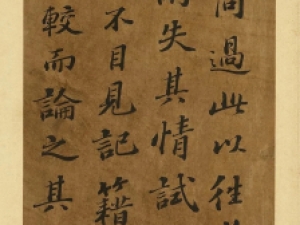 過此以往
失其情試
不目見記籍
較而論之其